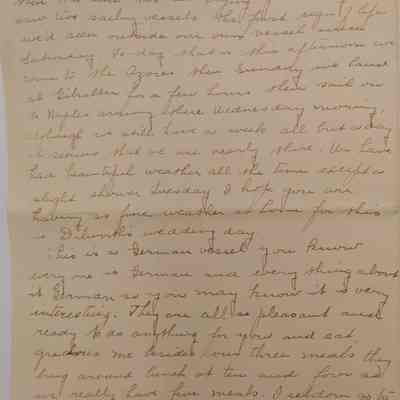 saw two sailing vessels the first sign of life
we'd seen outside our own vessel since
Saturday. To-day that is this afternoon we
come to the Azores then Sunday we land
at Gibraltar for a few hours then sail on
to Naples arriving there Wednesday morning.
Although we still have a week all but a day
it seems that we are nearly there. We have
had beautiful weather all the time except a
slight shower Tuesday I hope you are
having as fine weather at home for this
is wedding day.
This is a German vessel you know
every one is German and every thing about
it German so you may know it is very
interesting. They are all so pleasant and
ready to do anything for you and eat,
gracious me besides our three meals they
bring around lunch at ten and four so
we really have five meals. I seldom go to